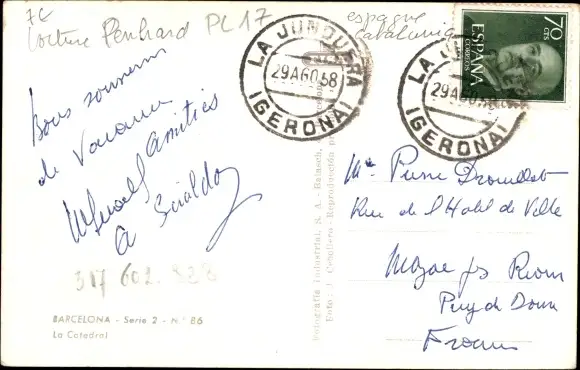 7€
voiture Penhard PL17
espagne
Catalunia
LA JUNQUERA
29 AGO 58
(GERONA)
LA JUNQUERA
29 AGO 58
(GERONA)
70 CTS
ESPAÑA
CORREOS
Bons souvenirs
de Vacances
Amitiés
317 602 828
BARCELONA - Serie 2 - N.° 86
La Catedral
Fotografía Industrial, S. A. - Balasch,
Foto: J. Cebollero - Reproducción
Mr Pierre
Rue de l'Hotel de Ville
Mozac Riom
Puy de Dome
France